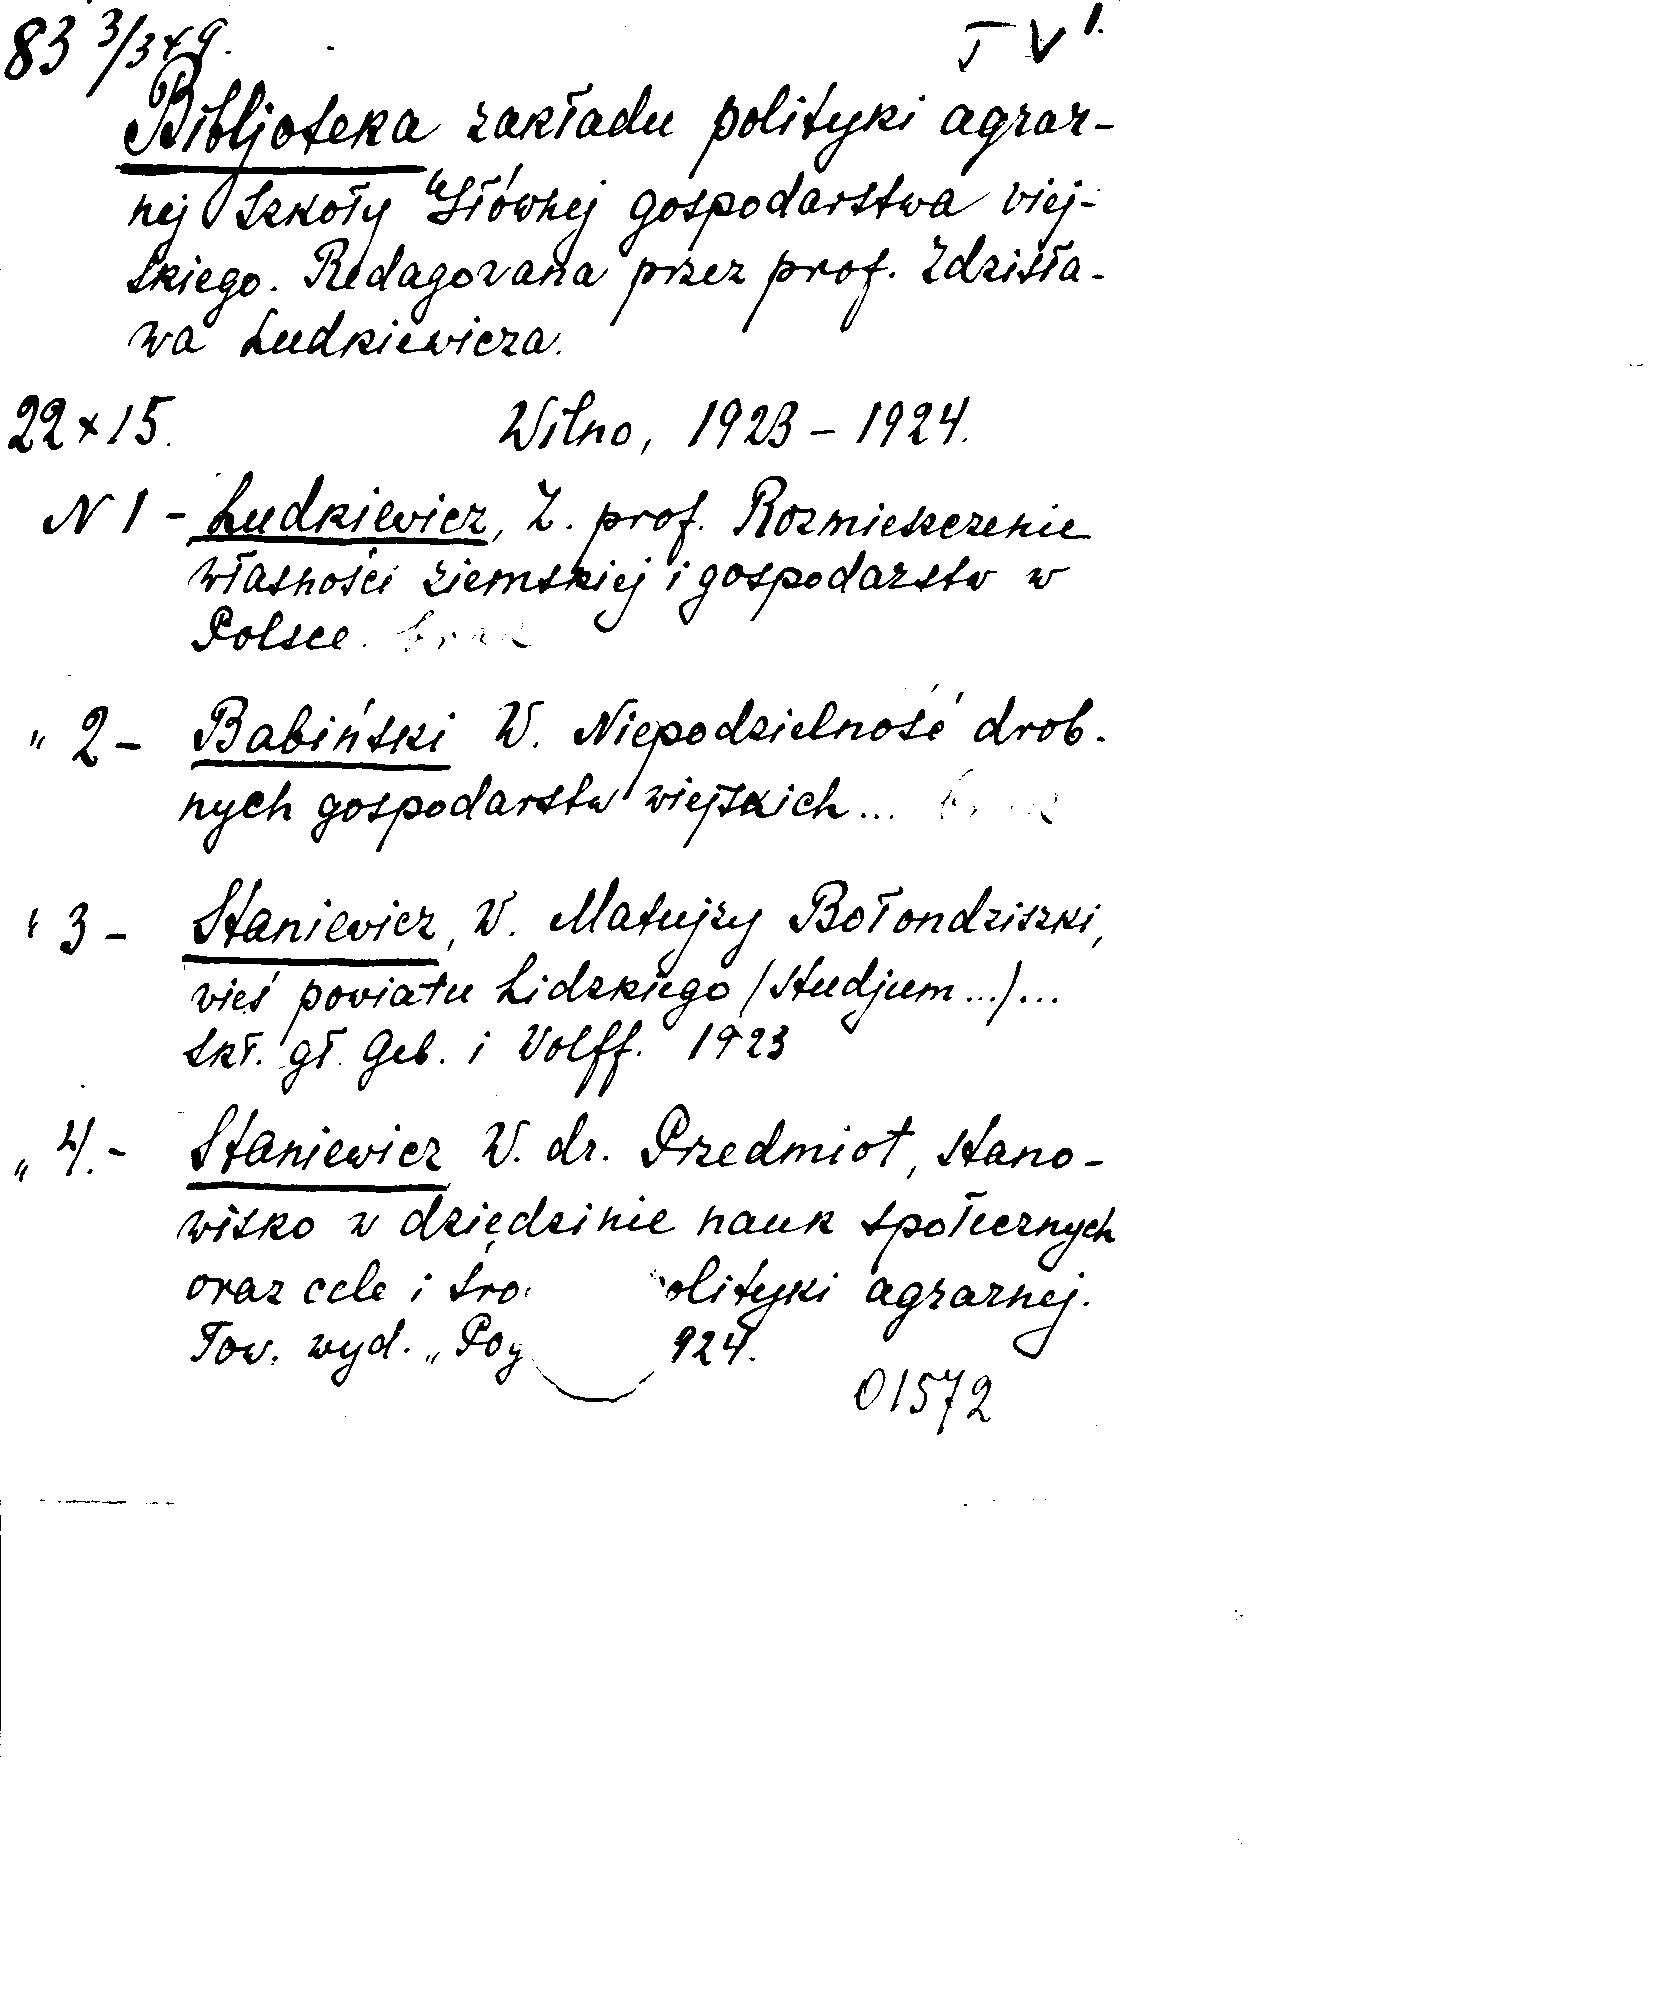 83 3/349.
T V 1.
Bibljoteka zakładu polityki agrar-
nej Szkoły Głównej gospodarstwa wiej-
skiego. Redagowana przez prof. Zdzisła-
wa Ludkiewicza.
22 x 15. Wilno, 1923 - 1924.
N 1 - Ludkiewicz, Z. prof. Rozmieszczenie
własności ziemskiej i gospodarstw w
Polsce. brak
" 2 - Babiński W. Niepodzielność drob-
nych gospodarstw wiejskich... brak
" 3 - Staniewicz, W. Matujzy Bołondziszki,
wieś powiatu Lidzkiego /Studjum.../...
Skł. gł. Geb. i Wolff. 1923
" 4. - Staniewicz W. dr. Przedmiot, stano-
wisko w dziedzinie nauk społecznych
oraz cele i śro olityki agrarnej.
Tow. wyd. „Pog 924.
01572